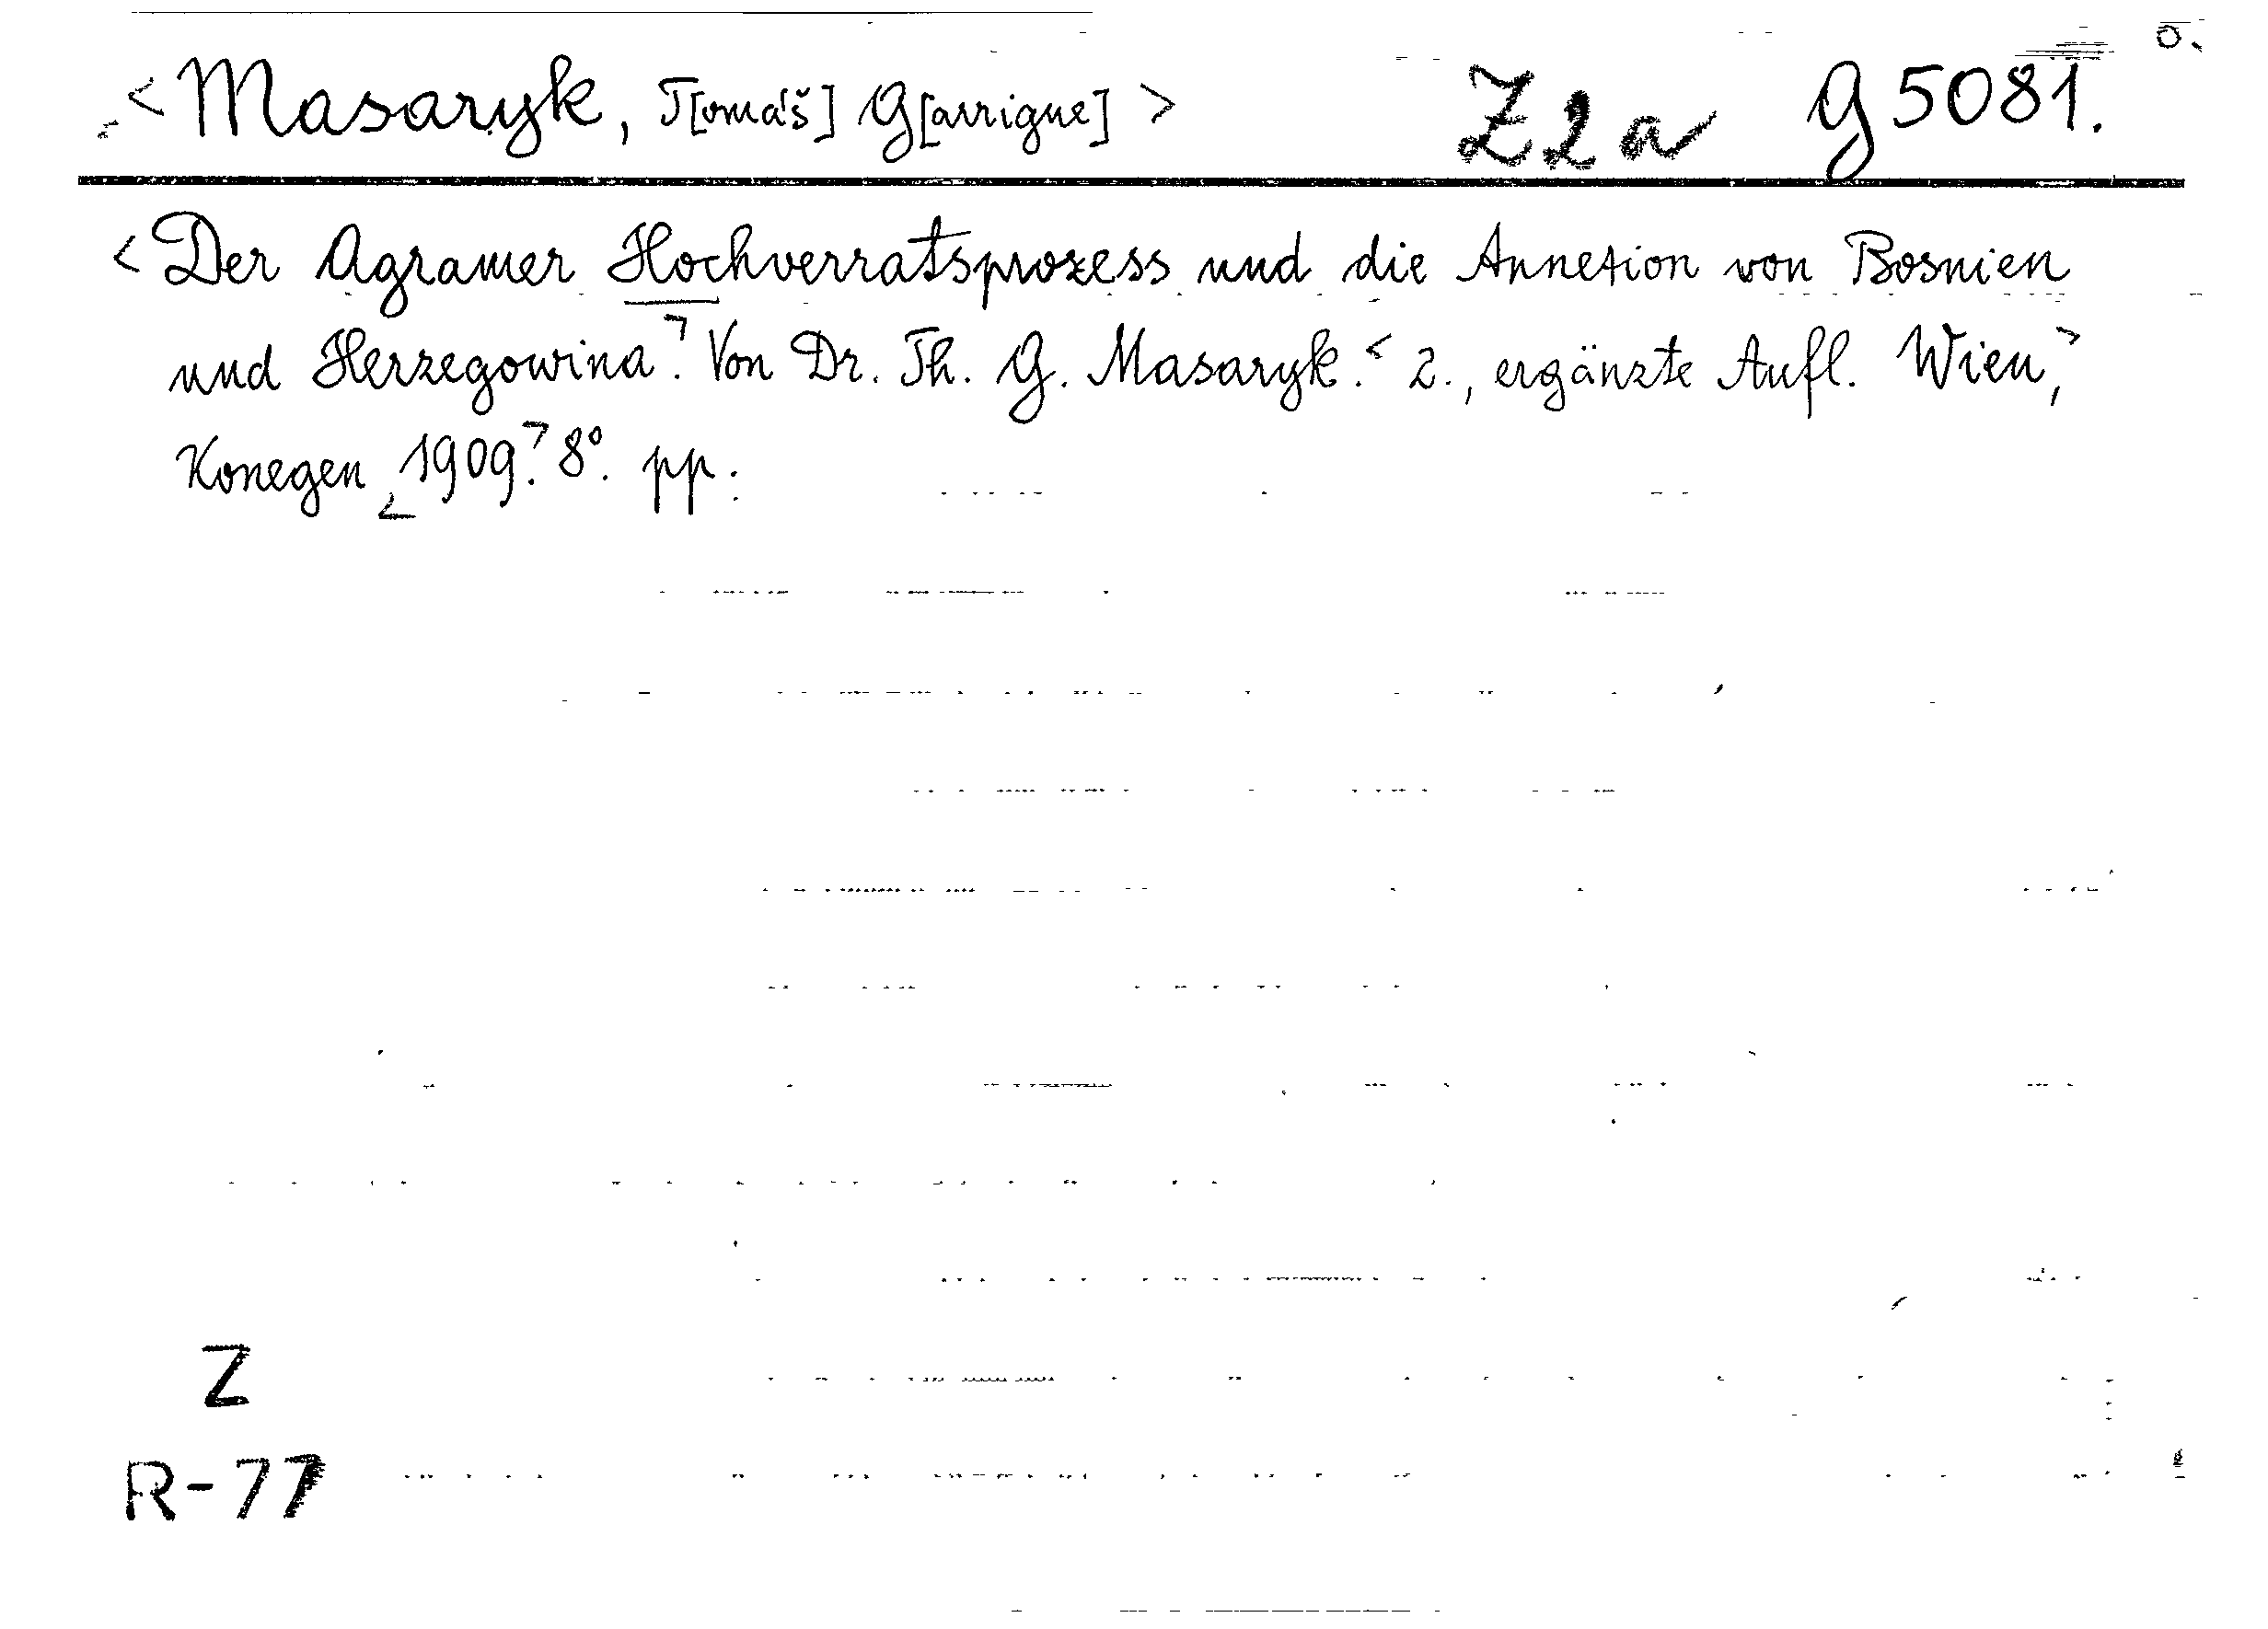 <Masaryk, T[omáš] G[arrigue]> Z2a G 5081.
<Der Agramer Hochverratsprozess und die Annexion von Bosnien
und Herzegowina.> Von Dr. Th. G. Masaryk.< 2., ergänzte Aufl. Wien,>
Konegen <1909.> 8°. pp.
Z
R-77